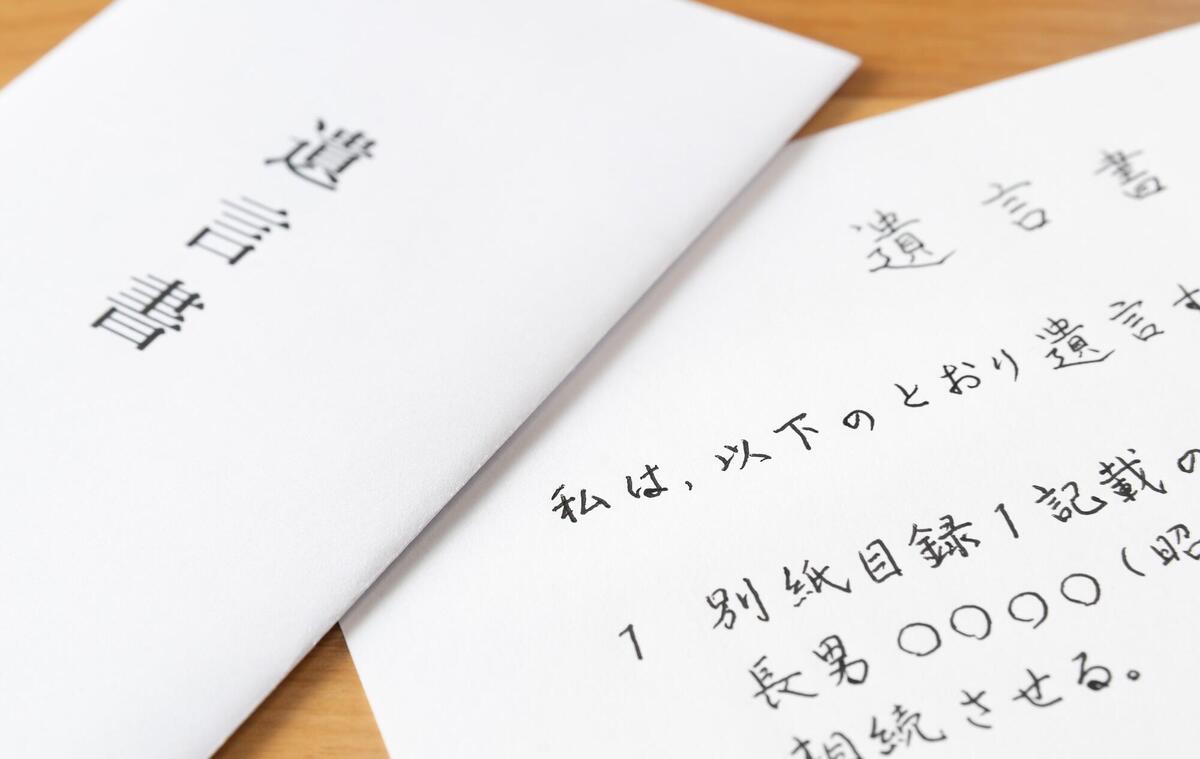 遺言書
遺言書
私は,以下のとおり遺言す
1 別紙目録1記載の
長男○○○○(昭
相続させる。